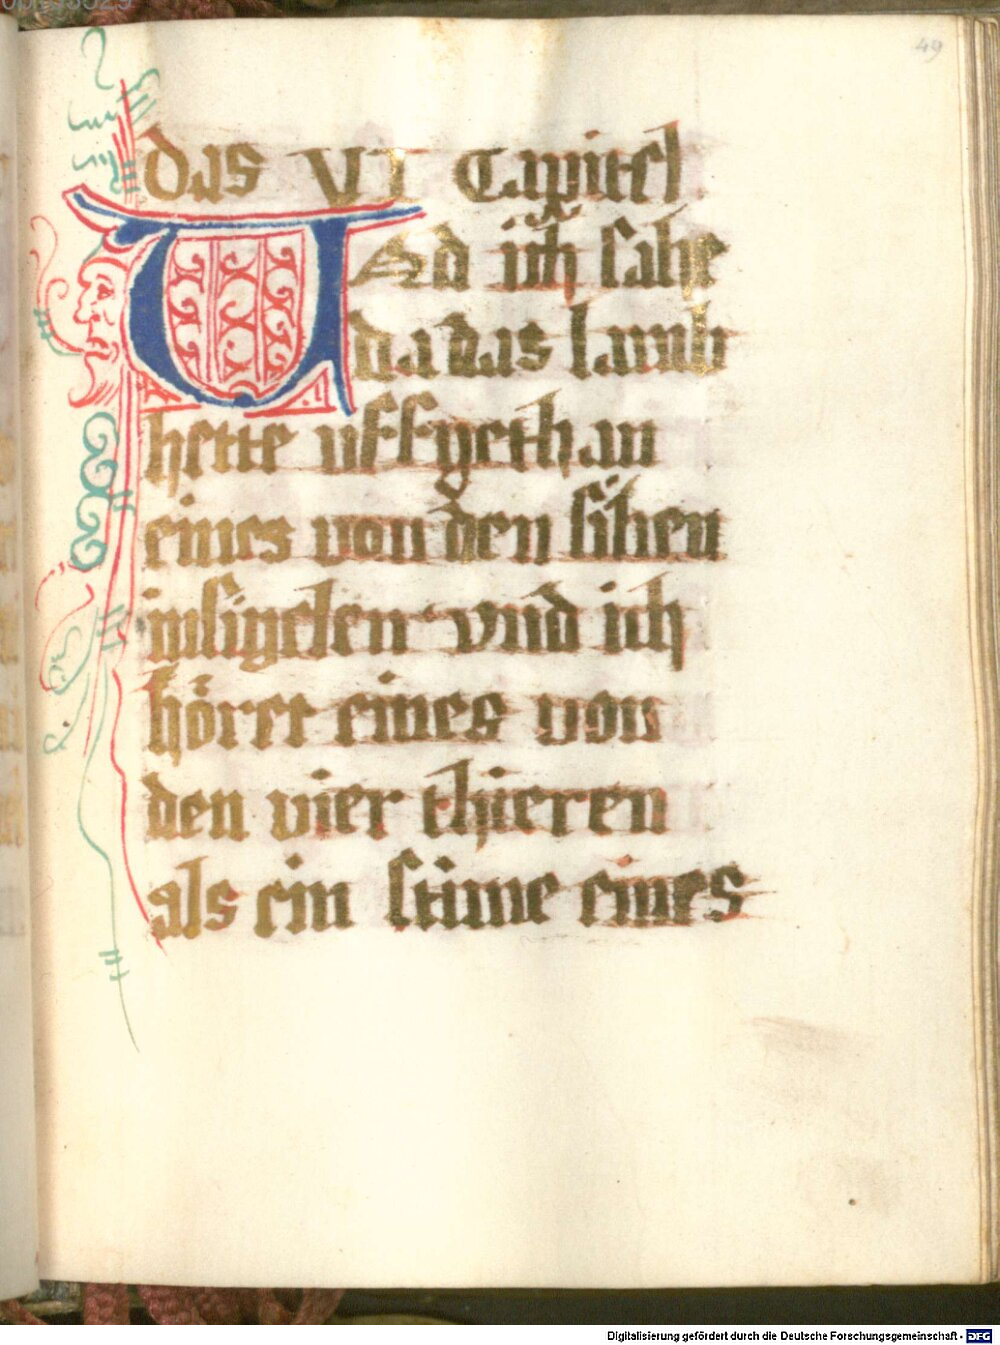 49
das VI Capittel
Vnd ich sahe
da das lamb
hette vffgethan
eines von den siben
insigelen vnd ich
höret eines von
den vier thieren
als ein stime eines
Digitalisierung gefördert durch die Deutsche Forschungsgemeinschaft - DFG